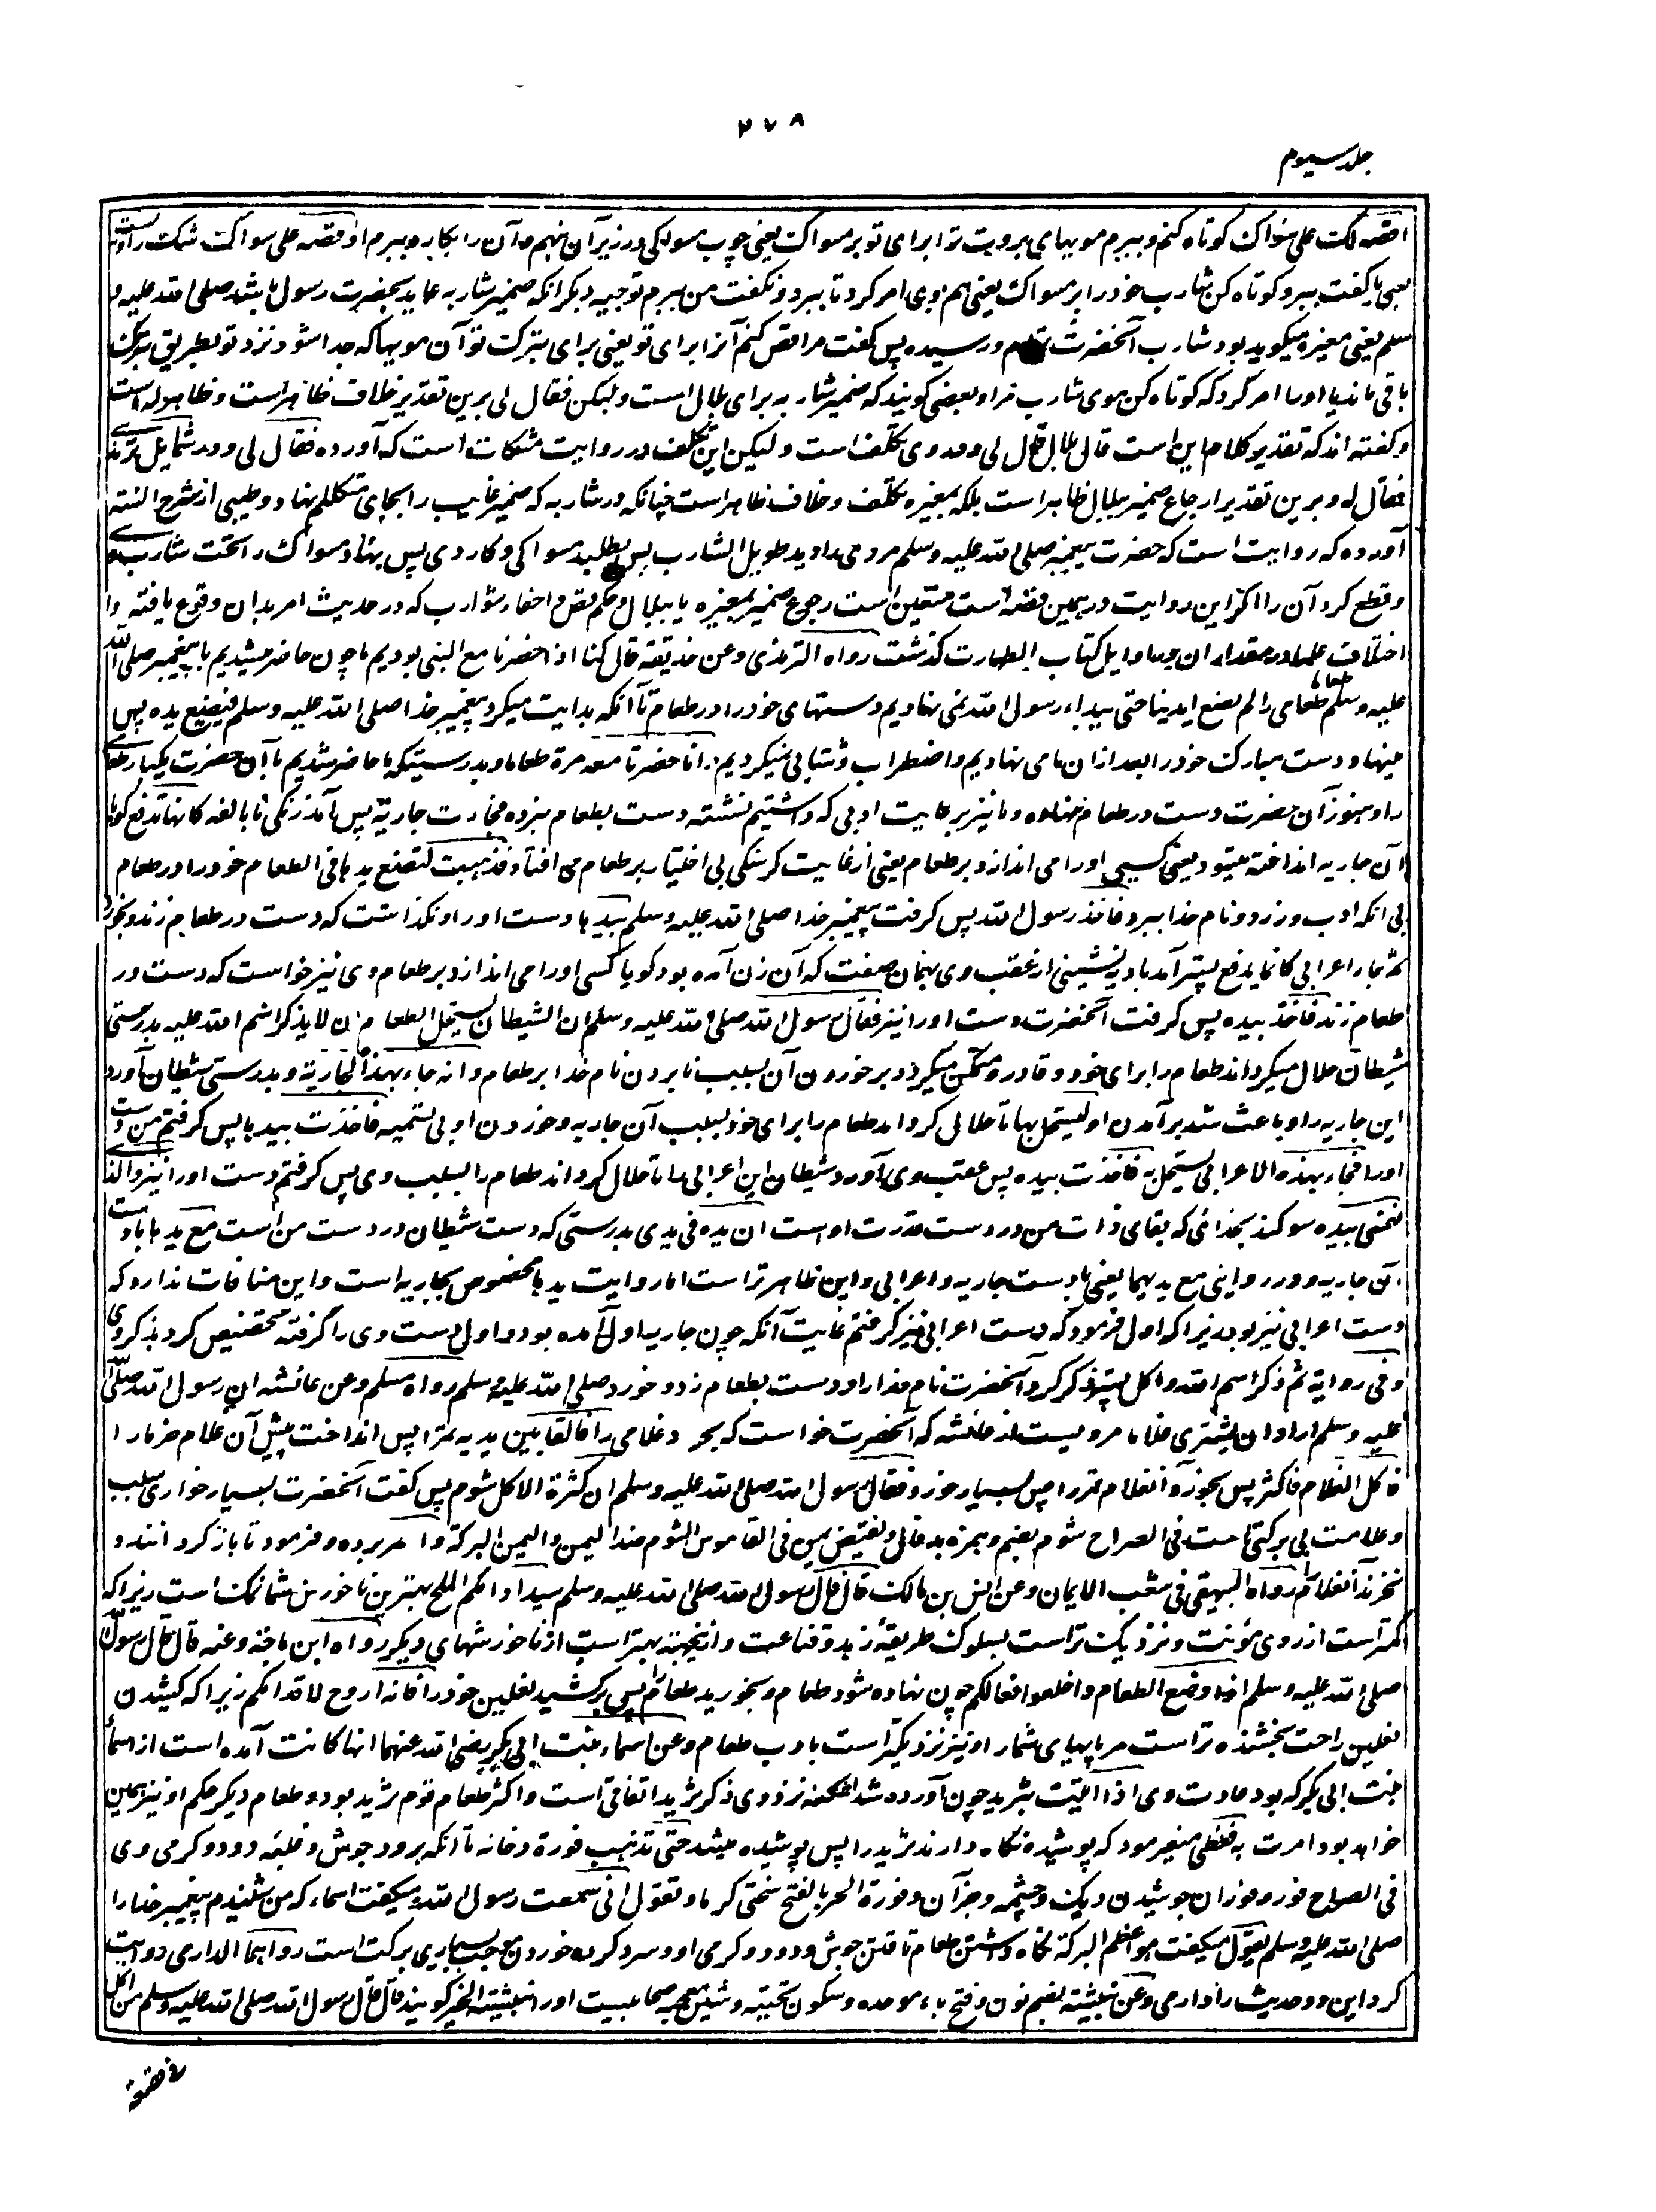 ۲۷۸
جلد سیوم
اقصه لک علی سواک کوتاه کنم و ببرم مویهای بروت ترا برای تو بر مسواک یعنی چوب مسواکی در زیر آن بنهم و آن را بکارد ببرم او قصه علی سواک شک راویست
یعنی یا گفت ببر و کوتاه کن شارب خود را بر مسواک یعنی هم بوی امر کرد تا ببرد و نگفت من ببرم توجیه دیگر آنکه ضمیر شاربه عاید بحضرت رسول باشد صلی الله علیه و
سلم یعنی مغیره میگوید بود شارب آنحضرت تمام و رسیده پس گفت مرا قص کنم آنرا برای تو یعنی برای تبرک تو آن مویها که جدا شود نزد تو بطریق تبرک
باقی ماند یا او را امر کرد که کوتاه کن موی شارب مرا و بعضی گویند که ضمیر شاربه برای بلال است ولیکن فقال لی برین تقدیر خلاف ظاهر است و ظاهر له است
و گفته اند که تقدیر کلام این است قال بلال قال لی و دروی تکلف است ولیکن این تکلف در روایت مشکات است که آورده فقال لی و در شمایل ترمذی
فقال له و برین تقدیر ارجاع ضمیر ببلال ظاهر است بلکه بمغیره تکلف و خلاف ظاهر است چنانکه در شاربه که ضمیر غایب را بجای متکلم نهاد و طیبی از شرح السنه
آورده که روایت است که حضرت پیغمبر صلی الله علیه و سلم مردی را دید طویل الشارب پس طلبید مسواکی و کاردی پس نهاد مسواک را تحت شارب وی
و قطع کرد آن را اگر این روایت در همین قصه است متعین است رجوع ضمیر بمغیره یا ببلال و حکم قص و احفاء شوارب که در حدیث امر بدان وقوع یافته و
اختلاف علما در مقدار آن در اوایل کتاب الطهارت گذشت رواه الترمذی وعن حذیفة قال کنا اذا حضرنا مع النبی بودیم ما چون حاضر میشدیم با پیغمبر صلی الله
علیه وسلم طعاما طعامی را لم نضع ایدینا حتی یبدا رسول الله نمی نهادیم دستهای خود را در طعام تا آنکه بدایت میکرد پیغمبر خدا صلی الله علیه وسلم فیضع یده پس
مینهاد دست مبارک خود را بعد از ان ما می نهادیم و اضطراب و شتابی نمیکردیم وانا حضرنا معه مرة طعاما و بدرستیکه ما حاضر شدیم با آن حضرت یکبار طعامی
را و هنوز آن حضرت دست در طعام ننهاده و ما نیز برعایت ادبی که داشتیم نشسته دست بطعام نبرده فجاءت جاریة پس آمد زنکی نابالغه کانها تدفع گویا
آن جاریه انداخته میشود یعنی کسی او را می اندازد بر طعام یعنی از غایت گرسنگی بی اختیار بر طعام می افتاد فذهبت لتضع یدها فی الطعام خود را در طعام
بی آنکه ادب ورزد و نام خدا ببرد فاخذ رسول الله پس گرفت پیغمبر خدا صلی الله علیه وسلم بیدها دست او را و نگذاشت که دست در طعام زند و بخورد
ثم جاء اعرابی کانما یدفع پستر آمد بادیه نشینی از عقب وی بهمان صفت که آن زن آمده بود گویا کسی او را می اندازد بر طعام وی نیز خواست که دست در
طعام زند فاخذ بیده پس گرفت آنحضرت دست او را نیز فقال رسول الله صلی الله علیه وسلم ان الشیطان یستحل الطعام ان لا یذکر اسم الله علیه بدرستی
شیطان حلال میگرداند طعام را برای خود و قادر و متمکن میگردد بر خوردن آن بسبب نا بردن نام خدا بر طعام وانه جاء بهذه الجاریة و بدرستی شیطان آورد
این جاریه را و باعث شد بر آمدن او لیستحل بها تا حلال گرداند طعام را برای خود بسبب آن جاریه و خوردن او بی تسمیه فاخذت بیدها پس گرفتم من دست
او را فجاء بهذا الاعرابی لیستحل به فاخذت بیده پس عقب وی آورد شیطان این اعرابی را تا حلال گرداند طعام را بسبب وی پس گرفتم دست او را نیز والذی
نفسی بیده سوگند بخدائی که بقای ذات من در دست قدرت اوست ان یده فی یدی بدرستی که دست شیطان در دست من است مع یدها با دست
آن جاریه و در روایتی مع یدیهما یعنی با دست جاریه و اعرابی و این ظاهر تر است اما روایت یدها مخصوص بجاریه است و این منافات ندارد که
دست اعرابی نیز بود زیرا که اول فرمود که دست اعرابی نیز گرفتم غایت آنکه چون جاریه اول آمده بود و اول دست وی را گرفته تخصیص کرد بذکر وی
و فی روایة ثم ذکر اسم الله و اکل پستر ذکر کرد آنحضرت نام خدا را و دست بطعام زد و خورد صلی الله علیه وسلم رواه مسلم وعن عائشه ان رسول الله صلی الله
علیه وسلم اراد ان یشتری غلاما مرویست از عائشه که آنحضرت خواست که بخرد غلامی را فالقا بین یدیه تمرا پس انداخت پیش آن غلام خرما را
فاکل الغلام فاکثر پس بخورد آن غلام تمر را پس بسیار خورد فقال رسول الله صلی الله علیه وسلم ان کثرة الاکل شوم پس گفت آنحضرت بسیار خواری سبب
و علامت بی برکتی است فی الصراح شوم بضم و همزه بد فالی و نقیض یمن فی القاموس الشوم ضد الیمن والیمن البرکة وامر برده و فرمود تا باز گردانند و
نخرند آن غلام را رواه البیهقی فی شعب الایمان وعن انس بن مالک قال قال رسول الله صلی الله علیه وسلم سید ادامکم الملح بهترین ناخورش شما نمک است زیرا که
کمتر است از روی مؤنت و نزدیک تر است بسلوک طریقهٔ زهد و قناعت و ازینجهة بهتر است از ناخورشهای دیگر رواه ابن ماجة وعنه قال قال رسول الله
صلی الله علیه وسلم اذا وضع الطعام فاخلعوا نعالکم چون نهاده شود طعام و بخورید طعام پس برکشید نعلین خود را فانه اروح لاقدامکم زیرا که کشیدن
نعلین راحت بخشنده تر است مر پایهای شما را و نیز نزدیکتر است بادب طعام وعن اسماء بنت ابی بکر رضی الله عنهما انها کانت آمده است از اسماء
بنت ابی بکر که بود عادت وی اذا اتیت بثرید چون آورده شد نزد وی ذکر ثرید اتفاقی است و اکثر طعام قوم ثرید بود و طعام دیگر حکم او نیز همین
خواهد بود امرت به فغطی میفرمود که پوشیده نگاه دارند ثرید را پس پوشیده میشد حتی تذهب فورة دخانه تا آنکه برود جوش و غلبه دود و گرمی وی
فی الصراح فور و فوران جوشیدن دیک و چشمه و جز آن و فورة الحر بالفتح سختی گرما و تقول انی سمعت رسول الله و میگفت اسماء که من شنیدم پیغمبر خدا را
صلی الله علیه وسلم یقول میگفت هو اعظم للبرکة نگاه داشتن طعام تا رفتن جوش و دود و گرمی او و سرد کرده خوردن موجب بسیاری برکت است رواهما الدارمی روایت
کرد این دو حدیث را دارمی وعن نبیشة بضم نون و فتح باء موحده و سکون تحتیه و شین معجمه صحابیست او را نبیشة الخیر گویند قال قال رسول الله صلی الله علیه وسلم من اکل
فی قصعة